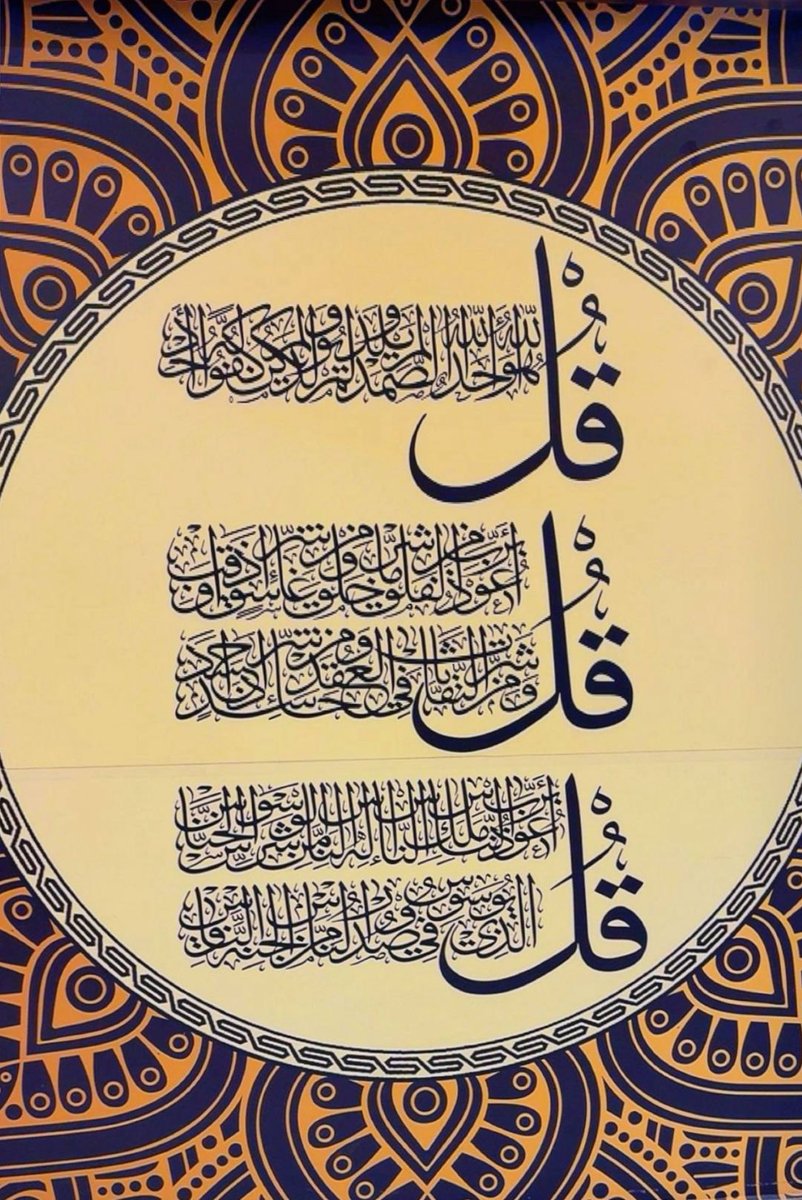 قُلْ هُوَ اللّٰهُ أَحَدٌ اللّٰهُ الصَّمَدُ لَمْ يَلِدْ وَلَمْ يُولَدْ وَلَمْ يَكُنْ لَهُ كُفُوًا أَحَدٌ
قُلْ أَعُوذُ بِرَبِّ الْفَلَقِ مِنْ شَرِّ مَا خَلَقَ وَمِنْ شَرِّ غَاسِقٍ إِذَا وَقَبَ
وَمِنْ شَرِّ النَّفَّاثَاتِ فِي الْعُقَدِ وَمِنْ شَرِّ حَاسِدٍ إِذَا حَسَدَ
قُلْ أَعُوذُ بِرَبِّ النَّاسِ مَلِكِ النَّاسِ إِلٰهِ النَّاسِ مِنْ شَرِّ الْوَسْوَاسِ الْخَنَّاسِ
الَّذِي يُوَسْوِسُ فِي صُدُورِ النَّاسِ مِنَ الْجِنَّةِ وَالنَّاسِ